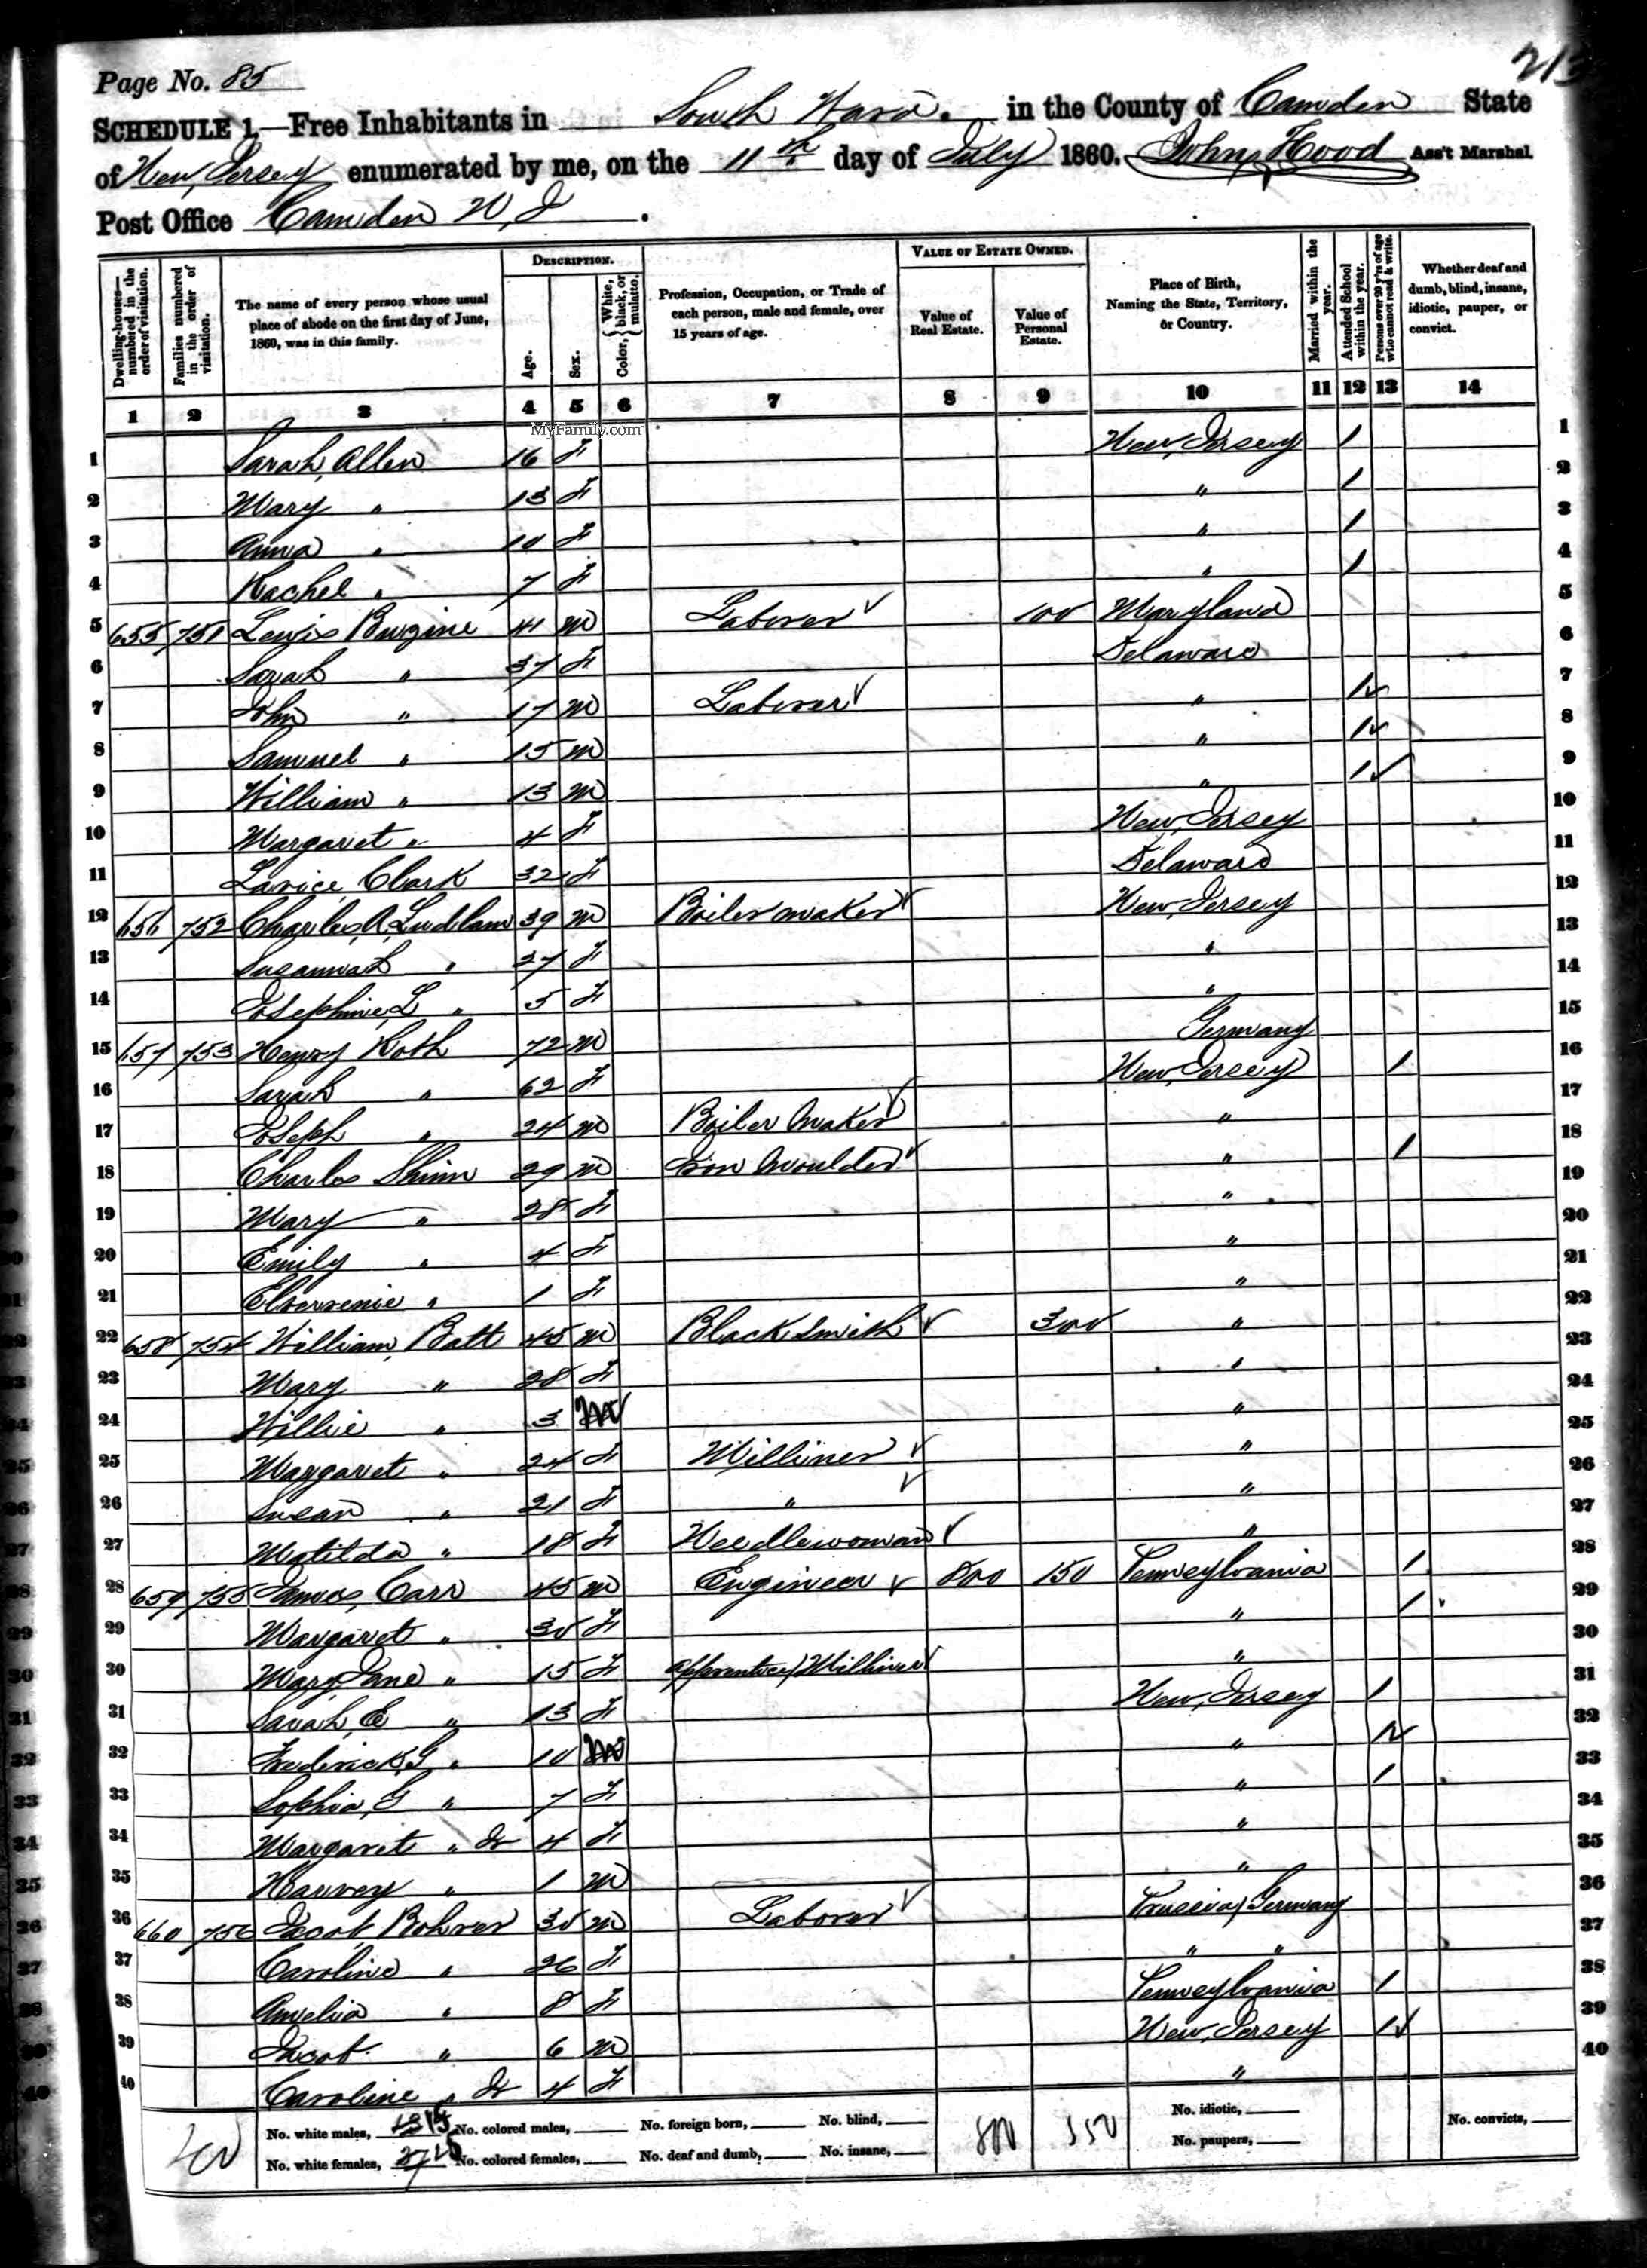 213
Page No. 85
SCHEDULE 1.—Free Inhabitants in South Ward. in the County of Camden State
of New Jersey enumerated by me, on the 11th day of July 1860. John Hood Ass't Marshal.
Post Office Camden N J.
Dwelling-houses—numbered in the order of visitation.
Families numbered in the order of visitation.
The name of every person whose usual place of abode on the first day of June, 1860, was in this family.
DESCRIPTION.
Age.
Sex.
Color, { White, black, or mulatto.
Profession, Occupation, or Trade of each person, male and female, over 15 years of age.
VALUE OF ESTATE OWNED.
Value of Real Estate.
Value of Personal Estate.
Place of Birth, Naming the State, Territory, or Country.
Married within the year.
Attended School within the year.
Persons over 20 y'rs of age who cannot read & write.
Whether deaf and dumb, blind, insane, idiotic, pauper, or convict.
1 2 3 4 5 6 7 8 9 10 11 12 13 14
MyFamily.com
1 Sarah Allen 16 F New Jersey / 1
2 Mary " 13 F " / 2
3 Anna " 10 F " / 3
4 Rachel " 7 F " / 4
5 655 751 Lewis Burgine 41 M Laborer 100 Maryland 5
6 Sarah " 37 F Delaware 6
7 John " 17 M Laborer " / 7
8 Samuel " 15 M " / 8
9 William " 13 M " / 9
10 Margaret " 4 F New Jersey 10
11 Clark 32 F Delaware 11
12 656 752 Charles A Ludlam 39 M Boiler maker New Jersey 12
13 Susannah " 27 F " 13
14 Josephine L " 5 F " 14
15 657 753 Henry Roth 72 M Germany 15
16 Sarah " 62 F New Jersey / 16
17 Joseph " 24 M Boiler Maker " 17
18 Charles Shinn 29 M Iron Moulder " / 18
19 Mary " 28 F " 19
20 Emily " 4 F " 20
21 " 1 F " 21
22 658 754 William Batt 45 M Black Smith 300 " 22
23 Mary " 28 F " 23
24 Willie " 3 M " 24
25 Margaret " 24 F Milliner " 25
26 Susan " 21 F " " 26
27 Matilda " 18 F Needlewoman " 27
28 659 755 James Carr 45 M Engineer 800 150 Pennsylvania / 28
29 Margaret " 35 F " / 29
30 Mary Jane " 15 F Apprentice Milliner " 30
31 Sarah E " 13 F New Jersey / 31
32 Frederick G " 10 M " / 32
33 Sophia G " 7 F " / 33
34 Margaret " Jr 4 F " 34
35 Harvey " 1 M " 35
36 660 756 Jacob Bohrer 30 M Laborer Prussia Germany 36
37 Caroline " 26 F " " 37
38 Amelia " 8 F Pennsylvania / 38
39 Jacob " 6 M New Jersey / 39
40 Caroline " Jr 4 F " 40
No. white males, 13 15 No. colored males, No. foreign born, No. blind, 800 550 No. idiotic, No. convicts,
No. white females, 27 25 No. colored females, No. deaf and dumb, No. insane, No. paupers,